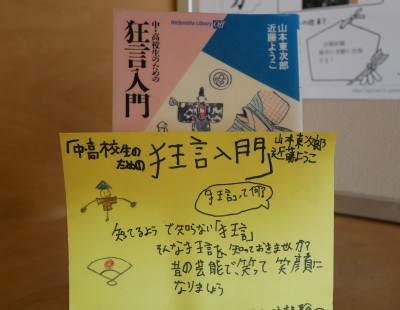 Heibonsha Library
Off
山本東次郎
近藤ようこ
中・高校生のための
狂言入門
「中高校生の
ための
狂言入門」
山本東次郎
近藤ようこ
狂言って何?
知ってるようで知らない「狂言」
そんな狂言を知っておきませんか?
昔の芸能で、笑って笑顔に
なりましょう